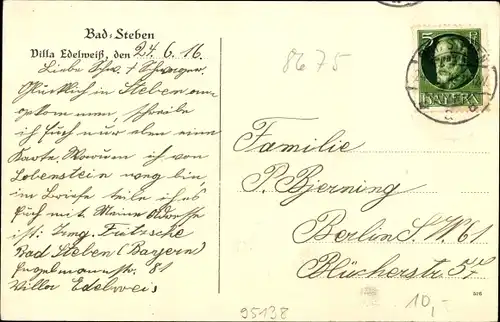 Bad-Steben
Villa Edelweiß, den 24.6.16
Liebe Schw. + Schwager.
Glücklich in Steben an-
gekommen, schreibe
ich Euch nur eben eine
Karte. Warum ich von
Lobenstein weg bin,
im Briefe teile ich es
Euch mit. Meine Adresse
ist: Ing. Fritzsche
Bad Steben (Bayern)
81
Villa Edelweis
8675
5
BAYERN
Familie
P. Bjerning
Berlin S.W. 61
Blücherstr. 57
95138
10,-